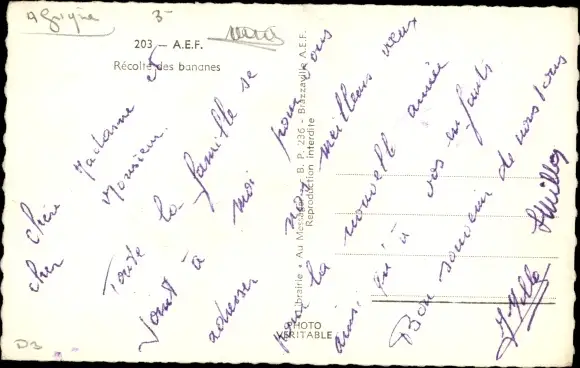 Afrique
3-
203 — A.E.F.
Récolte des bananes
Librairie • Au Messager • B. P. 236 - Brazzaville A.E.F.
Reproduction interdite
PHOTO
VÉRITABLE
Chère Madame et
Cher Monsieur.
Toute la famille se
joint à moi pour vous
adresser nos meilleurs vœux
pour la nouvelle année
ainsi qu'à vos enfants
Bon souvenir de nous tous
D3